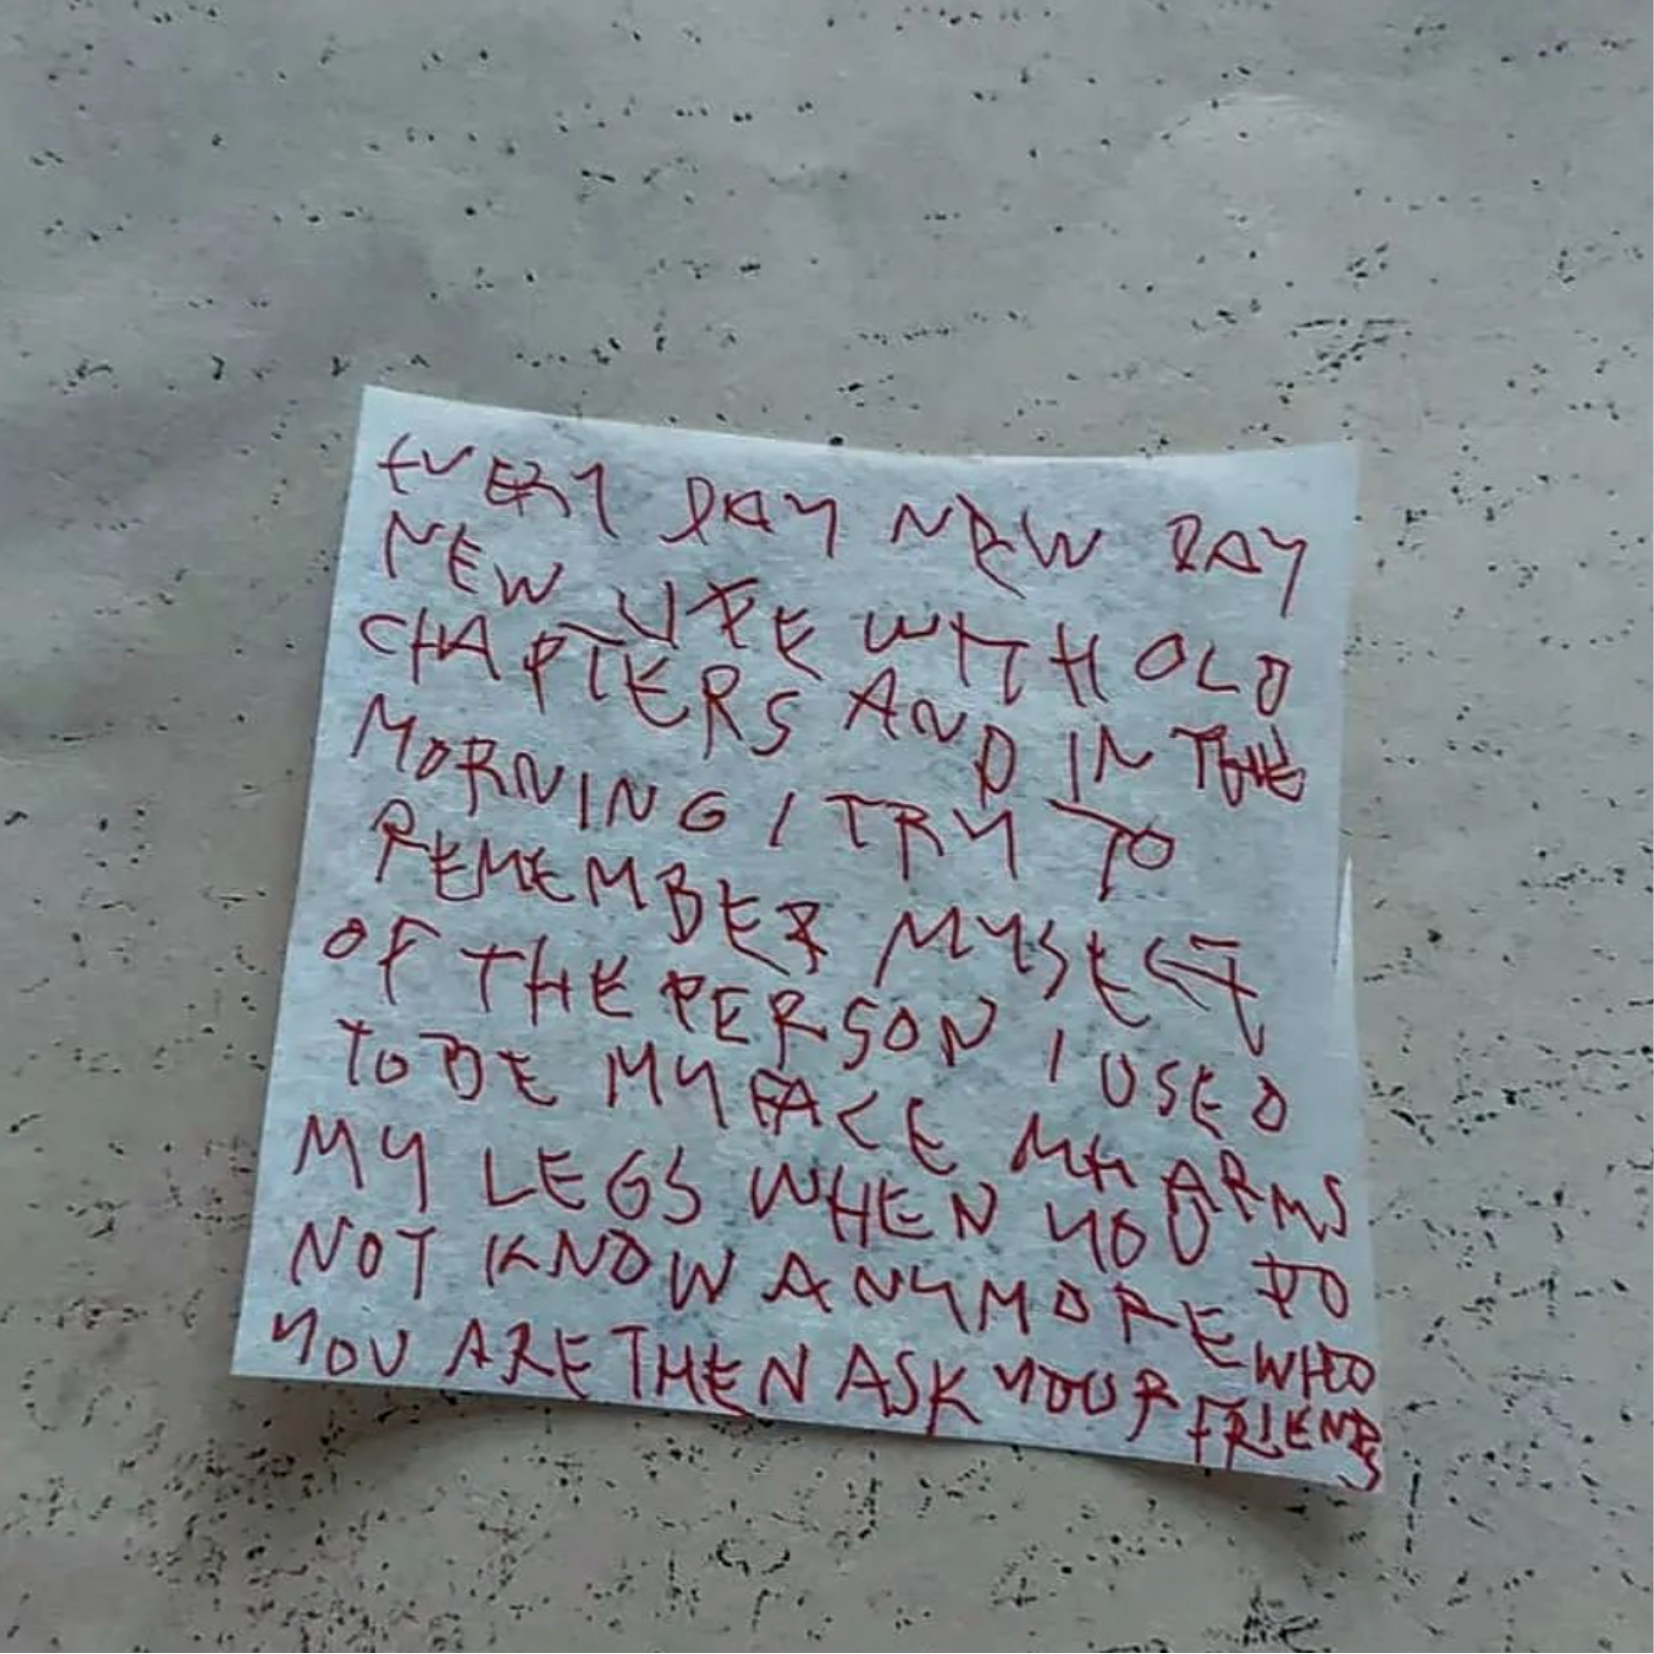 EVERY DAY NEW DAY
NEW LIFE WITH OLD
CHAPTERS AND IN THE
MORNING I TRY TO
REMEMBER MYSELF
OF THE PERSON I USED
TO BE MY FACE MY ARMS
MY LEGS WHEN YOU DO
NOT KNOW ANYMORE WHO
YOU ARE THEN ASK YOUR FRIENDS